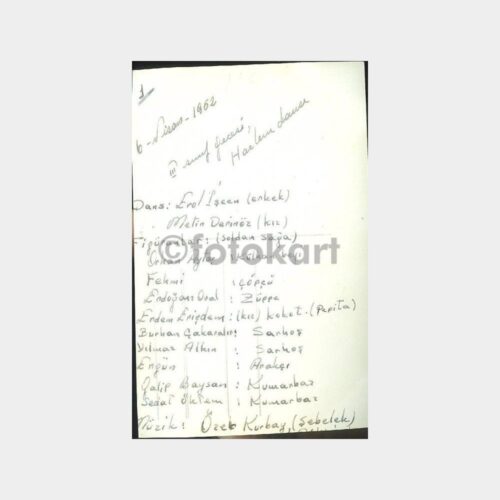 1
6-Nisan-1962
III sınıf gecesi,
Harlem dansı
Dans: Erol İşcen (erkek)
Metin Derinöz (kız)
Figüranlar: (soldan sağa)
Orhan
©fotokart
Fehmi : çöpçü
Erdoğan Oral : Züppe
Erdem Erişdem : (kız) koket. (Pepita)
Burhan Çakaralır : Sarhoş
Yılmaz Altın : Sarhoş
Ergün : Arakçı
Galip Baysan : Kumarbaz
Sedat Öktem : Kumarbaz
Müzik : Özer Kurbay (Şebelek)